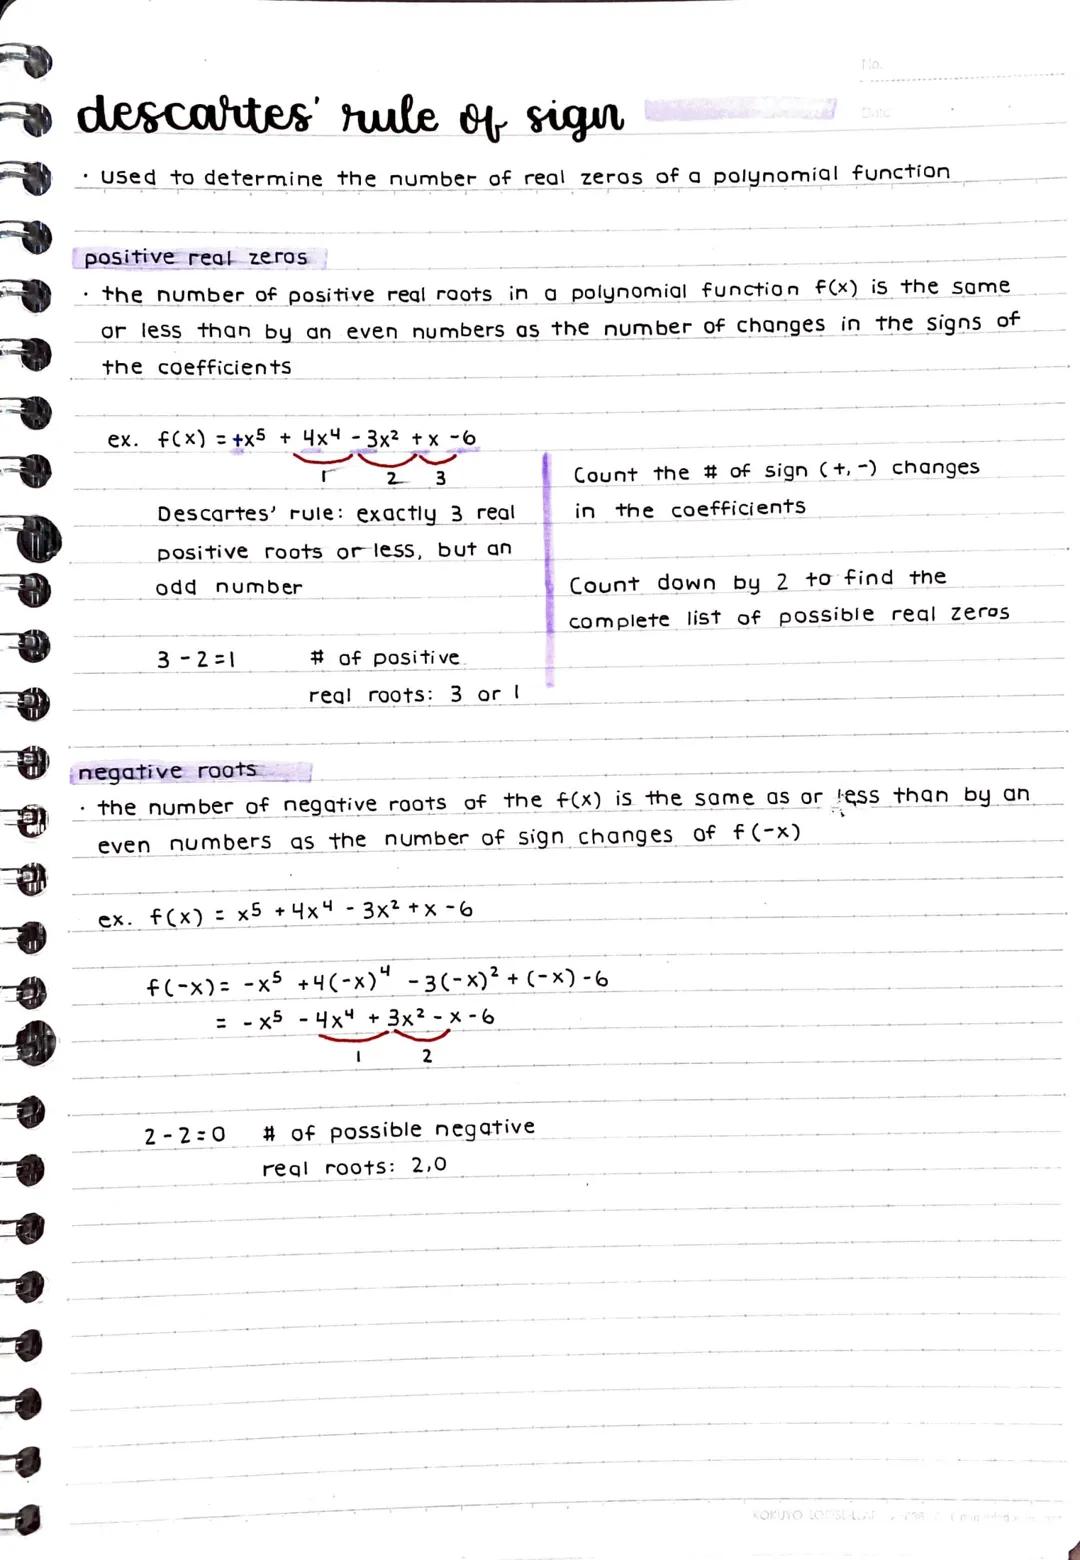 No.
descartes' rule of sign
Date
· used to determine the number of real zeros of a polynomial function
positive real zeros
· the number of positive real roots in a polynomial function f(x) is the same
or less than by an even numbers as the number of changes in the signs of
the coefficients
ex. f(x) = +x⁵ + 4x⁴ - 3x² + x - 6
1 2 3
Descartes' rule: exactly 3 real
positive roots or less, but an
odd number
3 - 2 = 1 # of positive
real roots: 3 or 1
Count the # of sign (+, -) changes
in the coefficients
Count down by 2 to find the
complete list of possible real zeros
negative roots
· the number of negative roots of the f(x) is the same as or less than by an
even numbers as the number of sign changes of f(-x)
ex. f(x) = x⁵ + 4x⁴ - 3x² + x - 6
f(-x) = -x⁵ + 4(-x)⁴ - 3(-x)² + (-x) - 6
= - x⁵ - 4x⁴ + 3x² - x - 6
1 2
2 - 2 = 0 # of possible negative
real roots: 2,0
KOKUYO